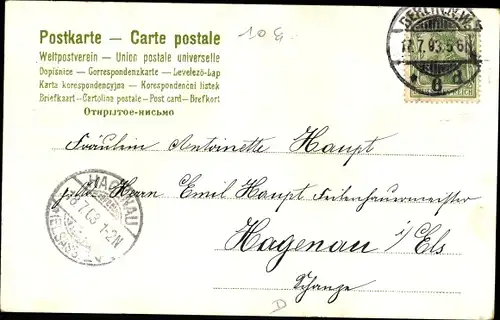 10 G
Postkarte — Carte postale
Weltpostverein — Union postale universelle
Dopisnice — Correspondenzkarte — Levelező-Lap
Karta korespondencyjna — Korespondencni listek
Briefkaart - Cartolina postale - Post card - Brefkort
Открытое-письмо
BERLIN
17.7.03.5-6N
REICH
Fräulein Antoinette Haupt
Herrn Emil Haupt Feilenhauermeister
Hagenau i/Els
Schanze
HAGENAU
7.03 1-2N
(ELSASS)
D